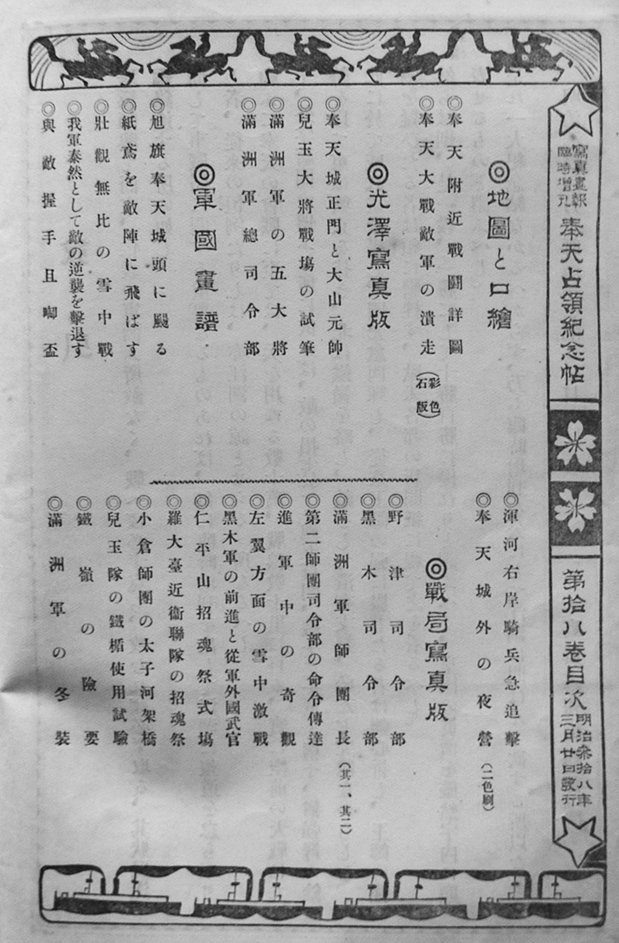 寫真畫報
臨時增刊
奉天占領紀念帖
第拾八卷目次
明治參拾八年
三月廿日發行
◎地圖と口繪
◎奉天附近戰鬪詳圖
◎奉天大戰敵軍の潰走（彩色石版）
◎光澤寫眞版
◎奉天城正門と大山元帥
◎兒玉大將戰塲の試筆
◎滿洲軍の五大將
◎滿洲軍總司令部
◎軍國畫譜
◎旭旗奉天城頭に颺る
◎紙鳶を敵陣に飛ばす
◎壯觀無比の雪中戰
◎我軍泰然として敵の逆襲を擊退す
◎與敵握手且啣盃
◎渾河右岸騎兵急追擊
◎奉天城外の夜營（二色刷）
◎戰局寫眞版
◎野津司令部
◎黑木司令部
◎滿洲軍師團長（其一、其二）
◎第二師團司令部の命令傳達
◎進軍中の奇觀
◎左翼方面の雪中激戰
◎黑木軍の前進と從軍外國武官
◎仁平山招魂祭式塲
◎羅大臺近衞聯隊の招魂祭
◎小倉師團の太子河架橋
◎兒玉隊の鐵楯使用試驗
◎鐵嶺の險要
◎滿洲軍の冬裝